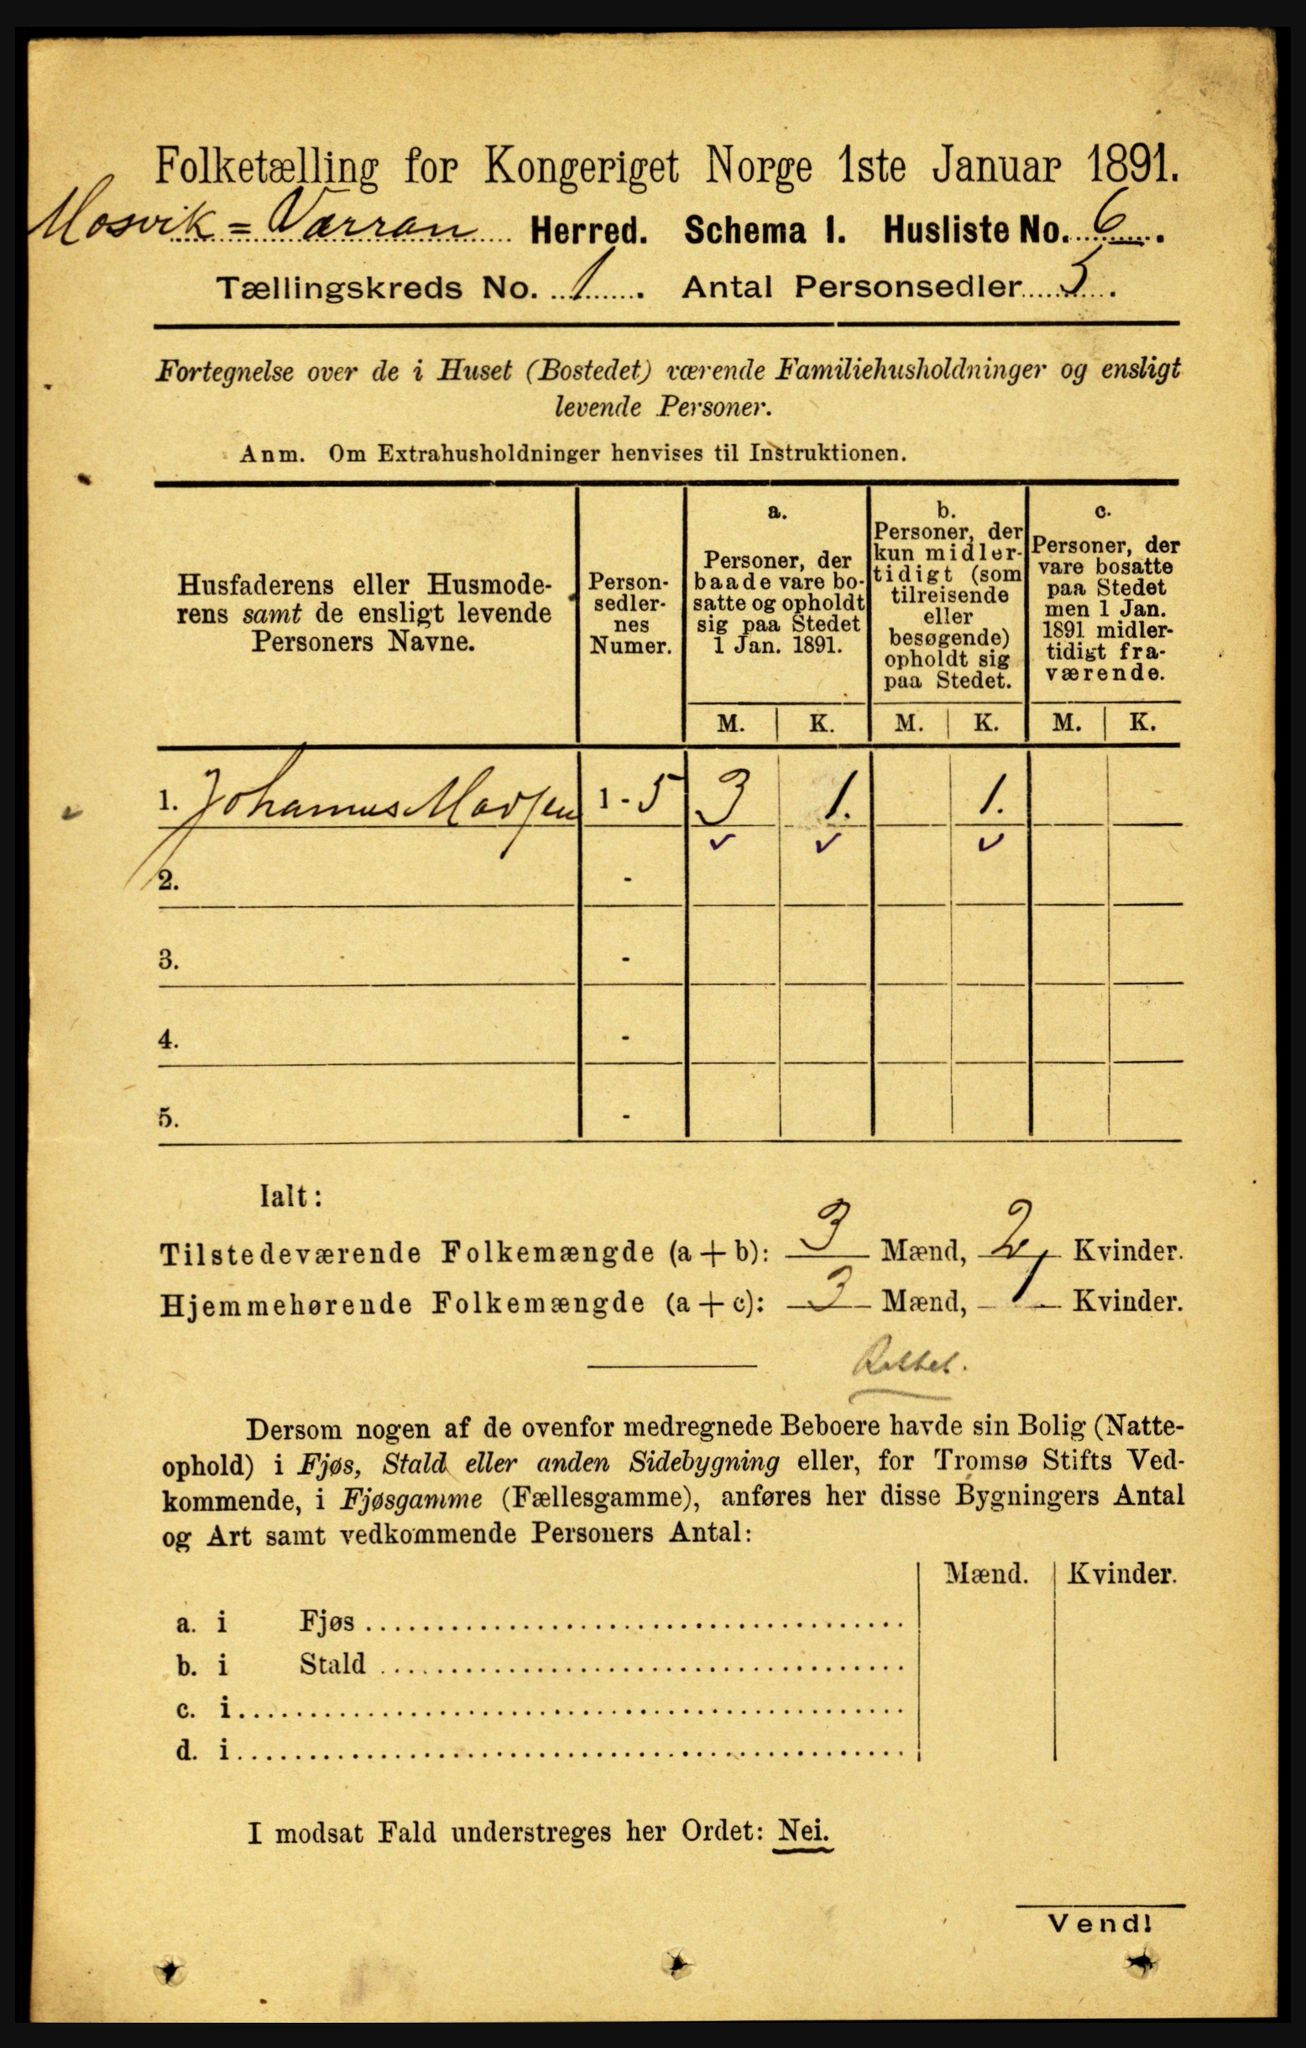 Folketælling for Kongeriget Norge 1ste Januar 1891.
Mosvik = Værran Herred. Schema I. Husliste No. 6.
Tællingskreds No. 1. Antal Personsedler 5.
Fortegnelse over de i Huset (Bostedet) værende Familiehusholdninger og ensligt
levende Personer.
Anm. Om Extrahusholdninger henvises til Instruktionen.
Husfaderens eller Husmode-
rens samt de ensligt levende
Personers Navne.
Person-
sedler-
nes
Numer.
a.
Personer, der
baade vare bo-
satte og opholdt
sig paa Stedet
1 Jan. 1891.
b.
Personer, der
kun midler-
tidigt (som
tilreisende
eller
besøgende)
opholdt sig
paa Stedet.
c.
Personer, der
vare bosatte
paa Stedet
men 1 Jan.
1891 midler-
tidigt fra-
værende.
M. K. M. K. M. K.
1. Johannus Madsen 1 - 5 3 1. 1.
2. -
3. -
4. -
5. -
Ialt:
Tilstedeværende Folkemængde (a + b): 3 Mænd, 2 Kvinder.
Hjemmehørende Folkemængde (a + c): 3 Mænd, 1 Kvinder.
Dersom nogen af de ovenfor medregnede Beboere havde sin Bolig (Natte-
ophold) i Fjøs, Stald eller anden Sidebygning eller, for Tromsø Stifts Ved-
kommende, i Fjøsgamme (Fællesgamme), anføres her disse Bygningers Antal
og Art samt vedkommende Personers Antal:
Mænd. Kvinder.
a. i Fjøs
b. i Stald
c. i
d. i
I modsat Fald understreges her Ordet: Nei.
Vend!